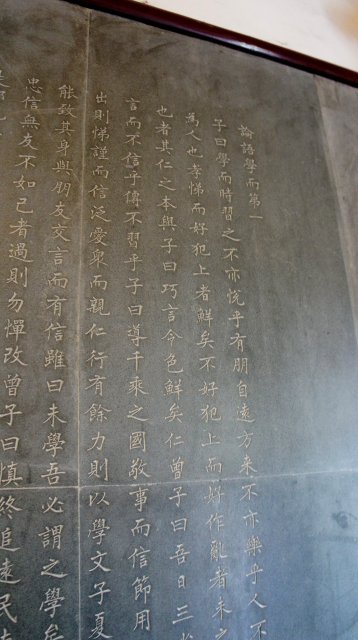 論語學而第一
子曰學而時習之不亦悅乎有朋自遠方来不亦樂乎人不
為人也孝悌而好犯上者鮮矣不好犯上而好作亂者未之
也者其仁之本與子曰巧言令色鮮矣仁曾子曰吾日三
言而不信乎傳不習乎子曰導千乘之國敬事而信節用
出則悌謹而信泛愛衆而親仁行有餘力則以學文子夏
能致其身與朋友交言而有信雖曰未學吾必謂之學矣
忠信無友不如己者過則勿憚改曾子曰慎終追遠民